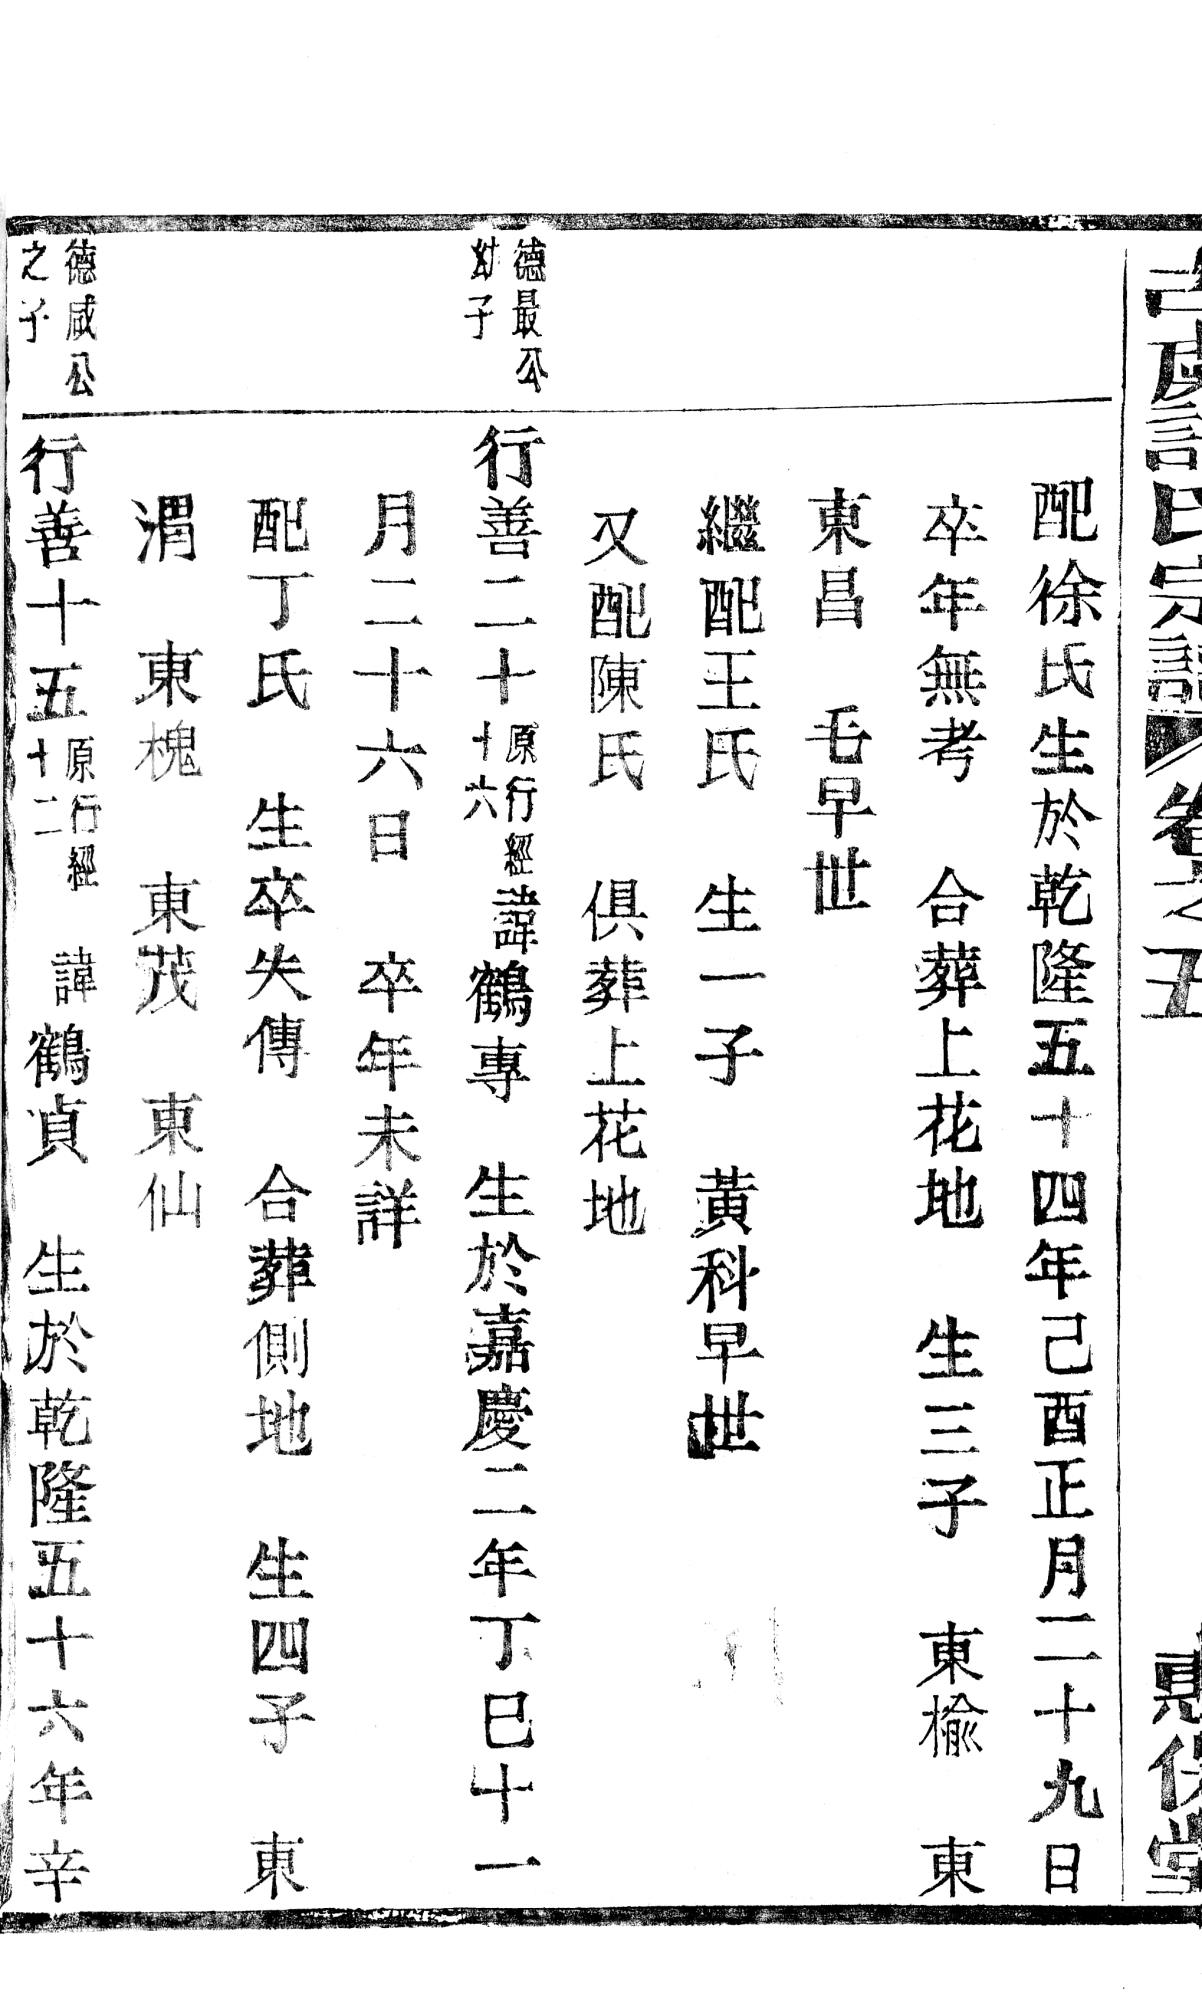 虞許氏宗譜 卷之五 堂
配徐氏生於乾隆五十四年己酉正月二十九日
卒年無考 合葬上花地 生三子 東榆 東
東昌 毛早世
繼配王氏 生一子 黃科早世
又配陳氏 俱葬上花地
德最公
幼子
行善二十原行經十六諱鶴專 生於嘉慶二年丁巳十一
月二十六日 卒年未詳
配丁氏 生卒失傳 合葬側地 生四子 東
渭 東槐 東茂 東仙
德咸公
之子
行善十五原行經十二 諱鶴貞 生於乾隆五十六年辛